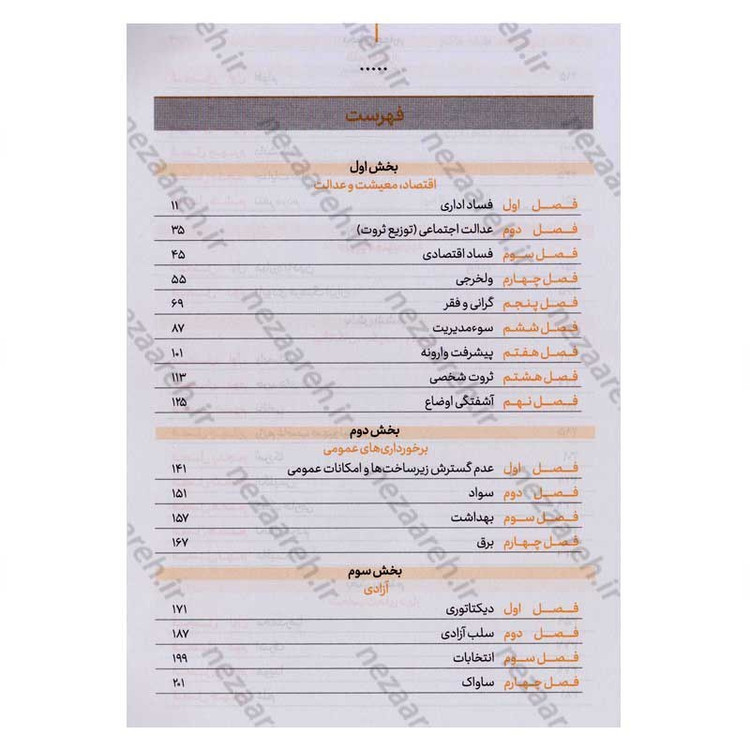 فهرست
بخش اول
اقتصاد، معیشت و عدالت
فصل اول فساد اداری ۱۱
فصل دوم عدالت اجتماعی (توزیع ثروت) ۳۵
فصل سوم فساد اقتصادی ۴۵
فصل چهارم ولخرجی ۵۵
فصل پنجم گرانی و فقر ۶۹
فصل ششم سوءمدیریت ۸۷
فصل هفتم پیشرفت وارونه ۱۰۱
فصل هشتم ثروت شخصی ۱۱۳
فصل نهم آشفتگی اوضاع ۱۲۵
بخش دوم
برخورداری‌های عمومی
فصل اول عدم گسترش زیرساخت‌ها و امکانات عمومی ۱۴۱
فصل دوم سواد ۱۵۱
فصل سوم بهداشت ۱۵۷
فصل چهارم برق ۱۶۷
بخش سوم
آزادی
فصل اول دیکتاتوری ۱۷۱
فصل دوم سلب آزادی ۱۸۷
فصل سوم انتخابات ۱۹۹
فصل چهارم ساواک ۲۰۱
nezaareh.ir